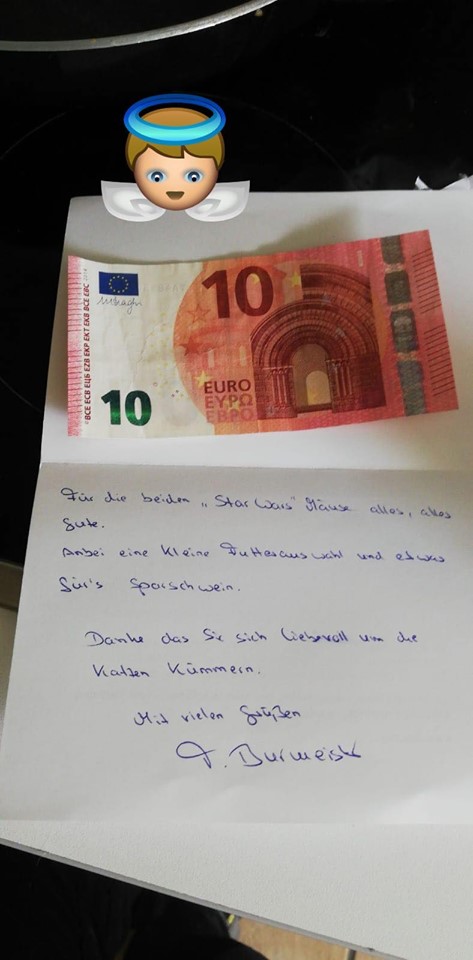 ©BCE ECB ЕЦБ EZB EKP EKT EKB BĊE EBC
10
10
EURO
ΕΥΡΩ
ЕВРО
Für die beiden „Star Wars" Mäuse alles, alles
Gute.
Anbei eine kleine Futterauswahl und etwas
für's Sparschwein.
Danke das Sie sich liebevoll um die
Katzen kümmern.
Mit vielen Grüßen
Burmeister